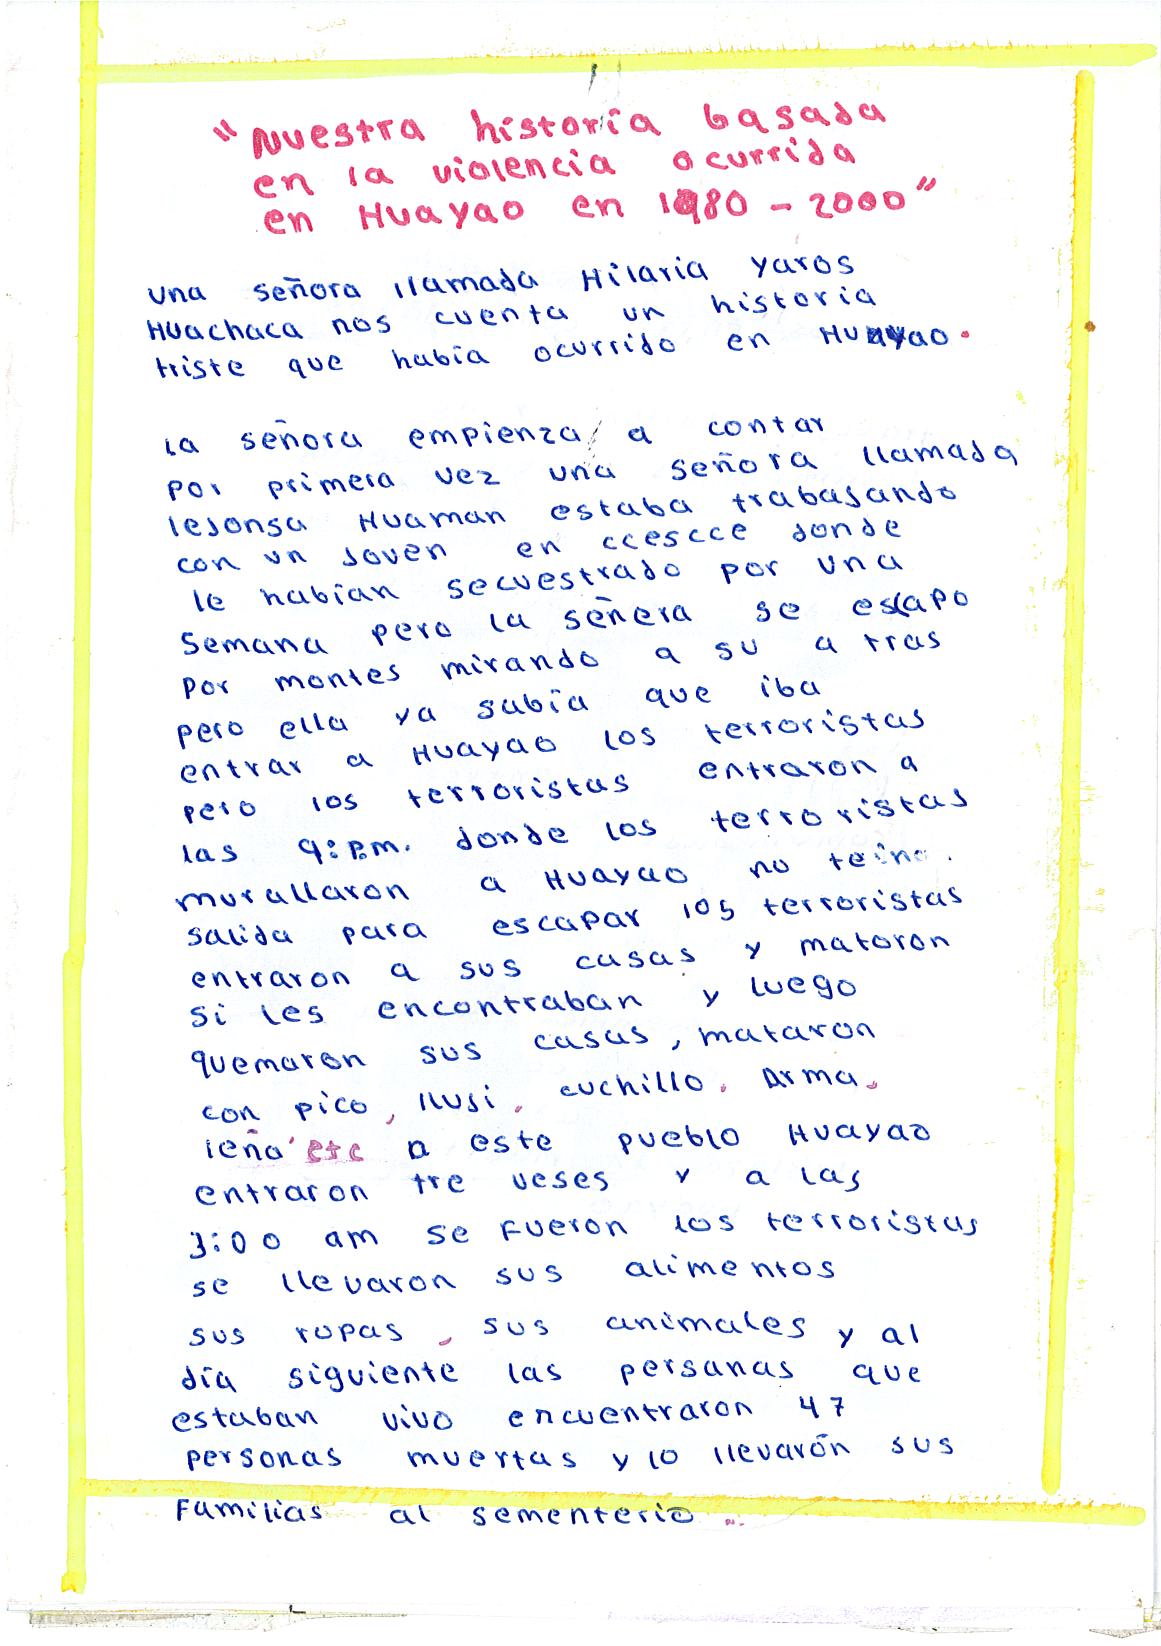 "Nuestra historia basada
en la violencia ocurrida
en Huayao en 1980 - 2000"
una señora llamada Hilaria Yaros
Huachaca nos cuenta un historia
triste que había ocurrido en Huayao.
la señora empienza a contar
por primera vez una señora llamada
lejonsa Huaman estaba trabajando
con un joven en ccescce donde
le habían secuestrado por una
semana pero la señera se escapo
por montes mirando a su a tras
pero ella ya sabía que iba
entrar a Huayao los terroristas
pero los terroristas entraron a
las 9:P.m. donde los terroristas
murallaron a Huayao no teino.
salida para escapar los terroristas
entraron a sus casas y mataron
si les encontraban y luego
quemaron sus casas, mataron
con pico, llusi, cuchillo, Arma,
leña' etc a este pueblo Huayao
entraron tre veses y a las
3:00 am se fueron los terroristas
se llevaron sus alimentos
sus ropas, sus animales y al
día siguiente las persanas que
estaban vivo encuentraron 47
personas muertas y lo llevarón sus
Familias al sementerio..